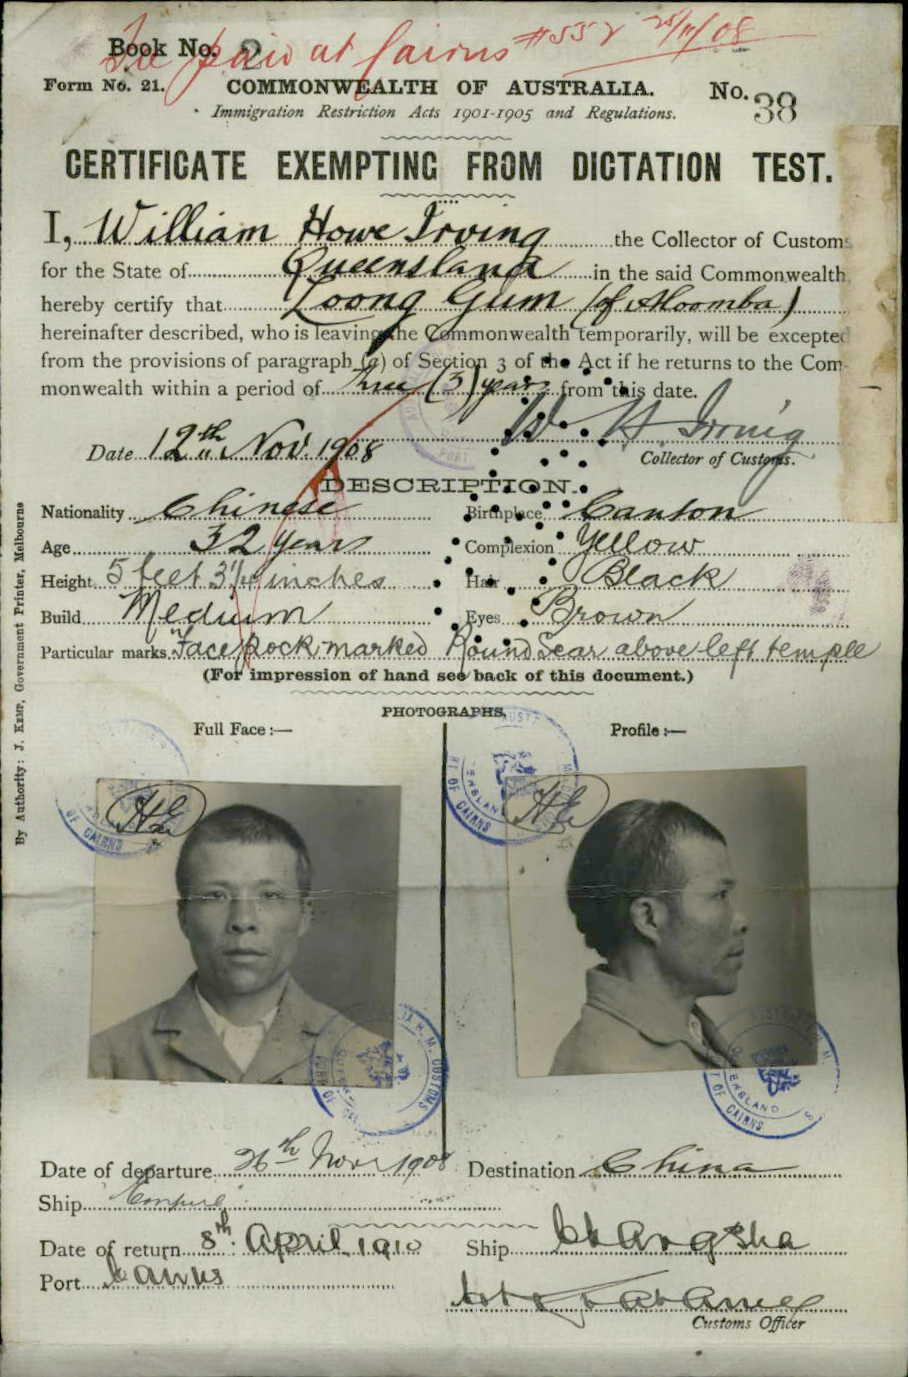 Book No. 2
Fee paid at Cairns #552 25/11/08
Form No. 21.
COMMONWEALTH OF AUSTRALIA.
No. 38
Immigration Restriction Acts 1901-1905 and Regulations.
CERTIFICATE EXEMPTING FROM DICTATION TEST.
I, William Howe Irving the Collector of Customs
for the State of Queensland in the said Commonwealth
hereby certify that Loong Gum (of Aloomba)
hereinafter described, who is leaving the Commonwealth temporarily, will be excepted
from the provisions of paragraph (a) of Section 3 of the Act if he returns to the Com-
monwealth within a period of three (3) years from this date.
W. H. Irving
Date 12th Nov. 1908
Collector of Customs.
DESCRIPTION.
Nationality Chinese Birthplace Canton
Age 32 years Complexion Yellow
Height 5 feet 3 1/4 inches Hair Black
Build Medium Eyes Brown
Particular marks Face pock marked Round Scar above left temple
(For impression of hand see back of this document.)
PHOTOGRAPHS.
Full Face:— Profile:—
By Authority: J. KEMP, Government Printer, Melbourne
PORT OF CAIRNS
H. M. CUSTOMS
QUEENSLAND
Date of departure 26th Nov 1908 Destination China
Ship Empire
Date of return 8th April 1910 Ship Changsha
Port Cairns
Customs Officer